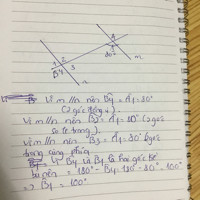 A
1
30°
m
1 2
B 4 3
n
Vì m // n nên B4 = A1 = 30°
(2 góc đồng vị).
Vì m // n nên B2 = A1 = 30° (2 góc
so le trong).
Vì m // n nên B3 = A1 = 30° (2 góc
trong cùng phía.
Vì B1 và B4 là hai góc kề
bù nên = 180° - B4 = 180° - 30° = 100°
=> B1 = 100°